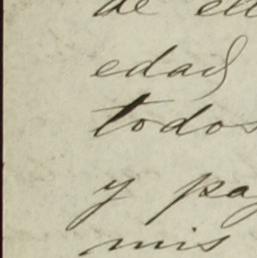 de ell
edad
todos
y pag
mis